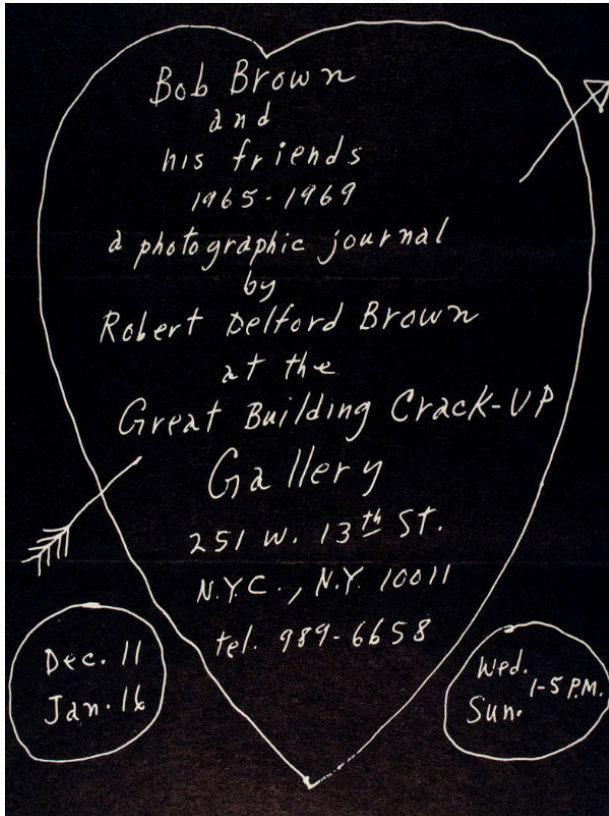 Bob Brown
and
his friends
1965-1969
a photographic journal
by
Robert Delford Brown
at the
Great Building Crack-UP
Gallery
251 W. 13th St.
N.Y.C., N.Y. 10011
tel. 989-6658
Dec. 11
Jan. 16
Wed.
1-5 P.M.
Sun.